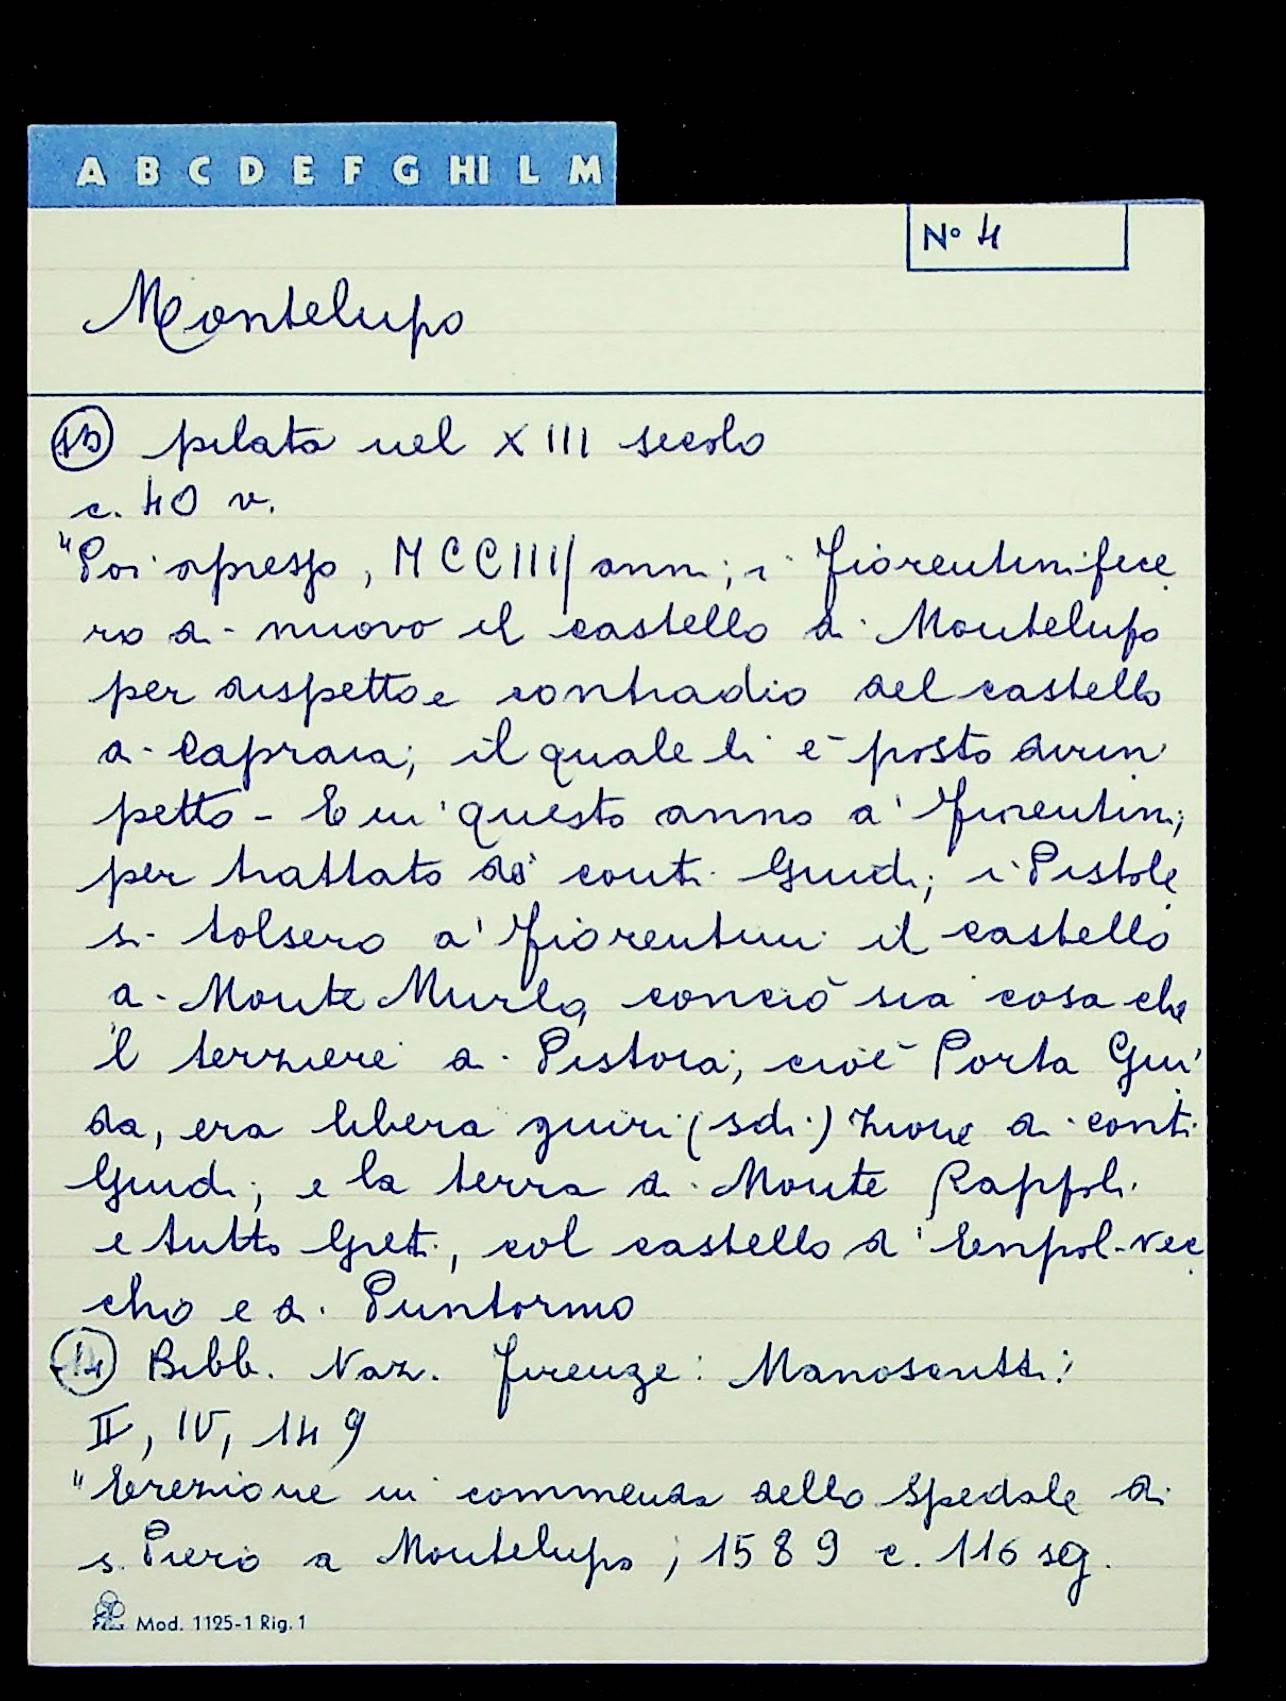 A B C D E F G HI L M
N° 4
Montelupo
13 pilata nel XIII secolo
c. 40 v.
"Poi apresso, MCCIII/anni, i Fiorentini fece
ro di nuovo il castello di Montelupo
per dispetto e contradio del castello
di Capraia, il quale li è posto dirin
petto - E in questo anno a' Fiorentini,
per trattato de' conti Guidi, i Pistole
si tolsero a' Fiorentini il castello
di Monte Murlo, conciò sia cosa che
'l terziere di Pistoia, cioè Porta Gui
da, era libera giuri (sdi) zione di conti
Guidi, e la terra di Monte Rappoli
e tutto Greti, col castello d'Enpol-vec
chio e di Puntormo
14 Bibb. Naz. Firenze: Manoscritti:
II, IV, 149
"Erezione in commenda dello Spedale di
s. Piero a Montelupo, 1589 c. 116 sg.
Mod. 1125-1 Rig. 1